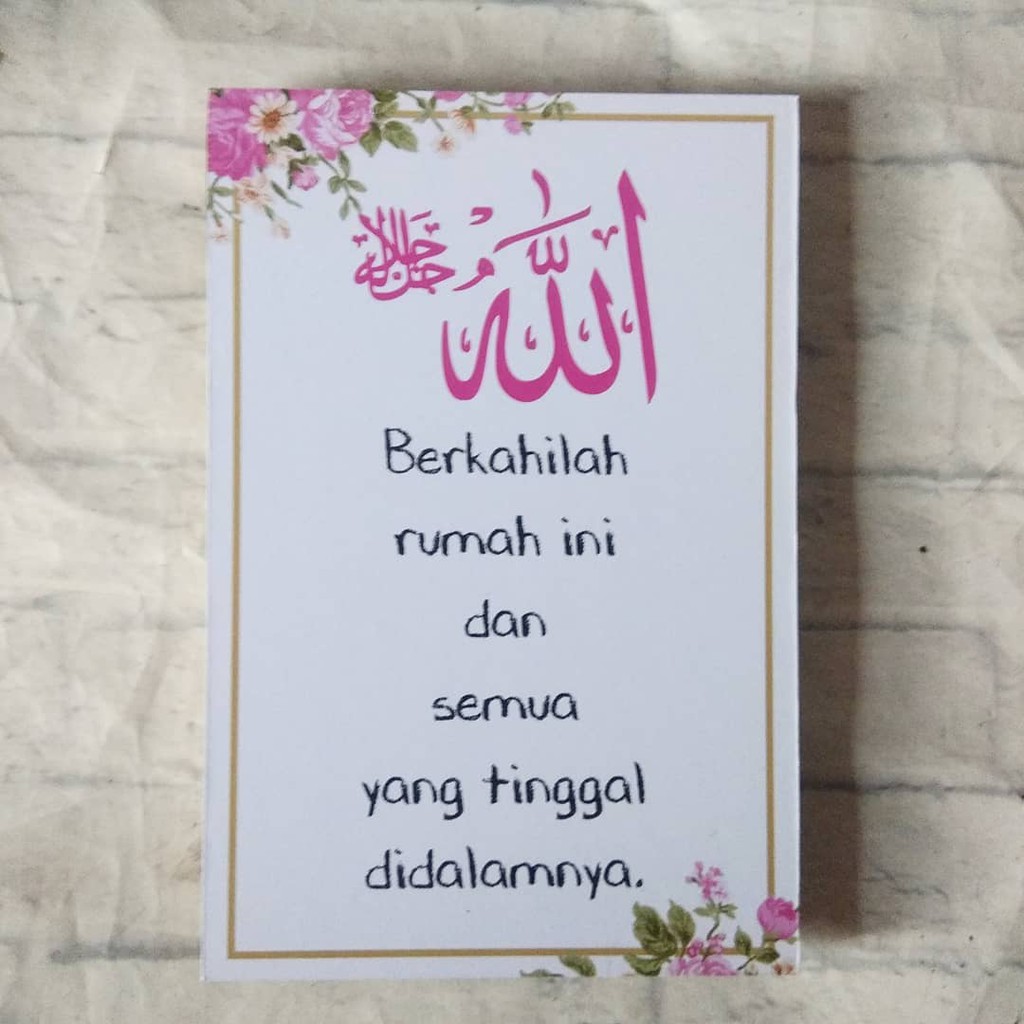 اللَّهُ جل جلاله
Berkahilah
rumah ini
dan
semua
yang tinggal
didalamnya.